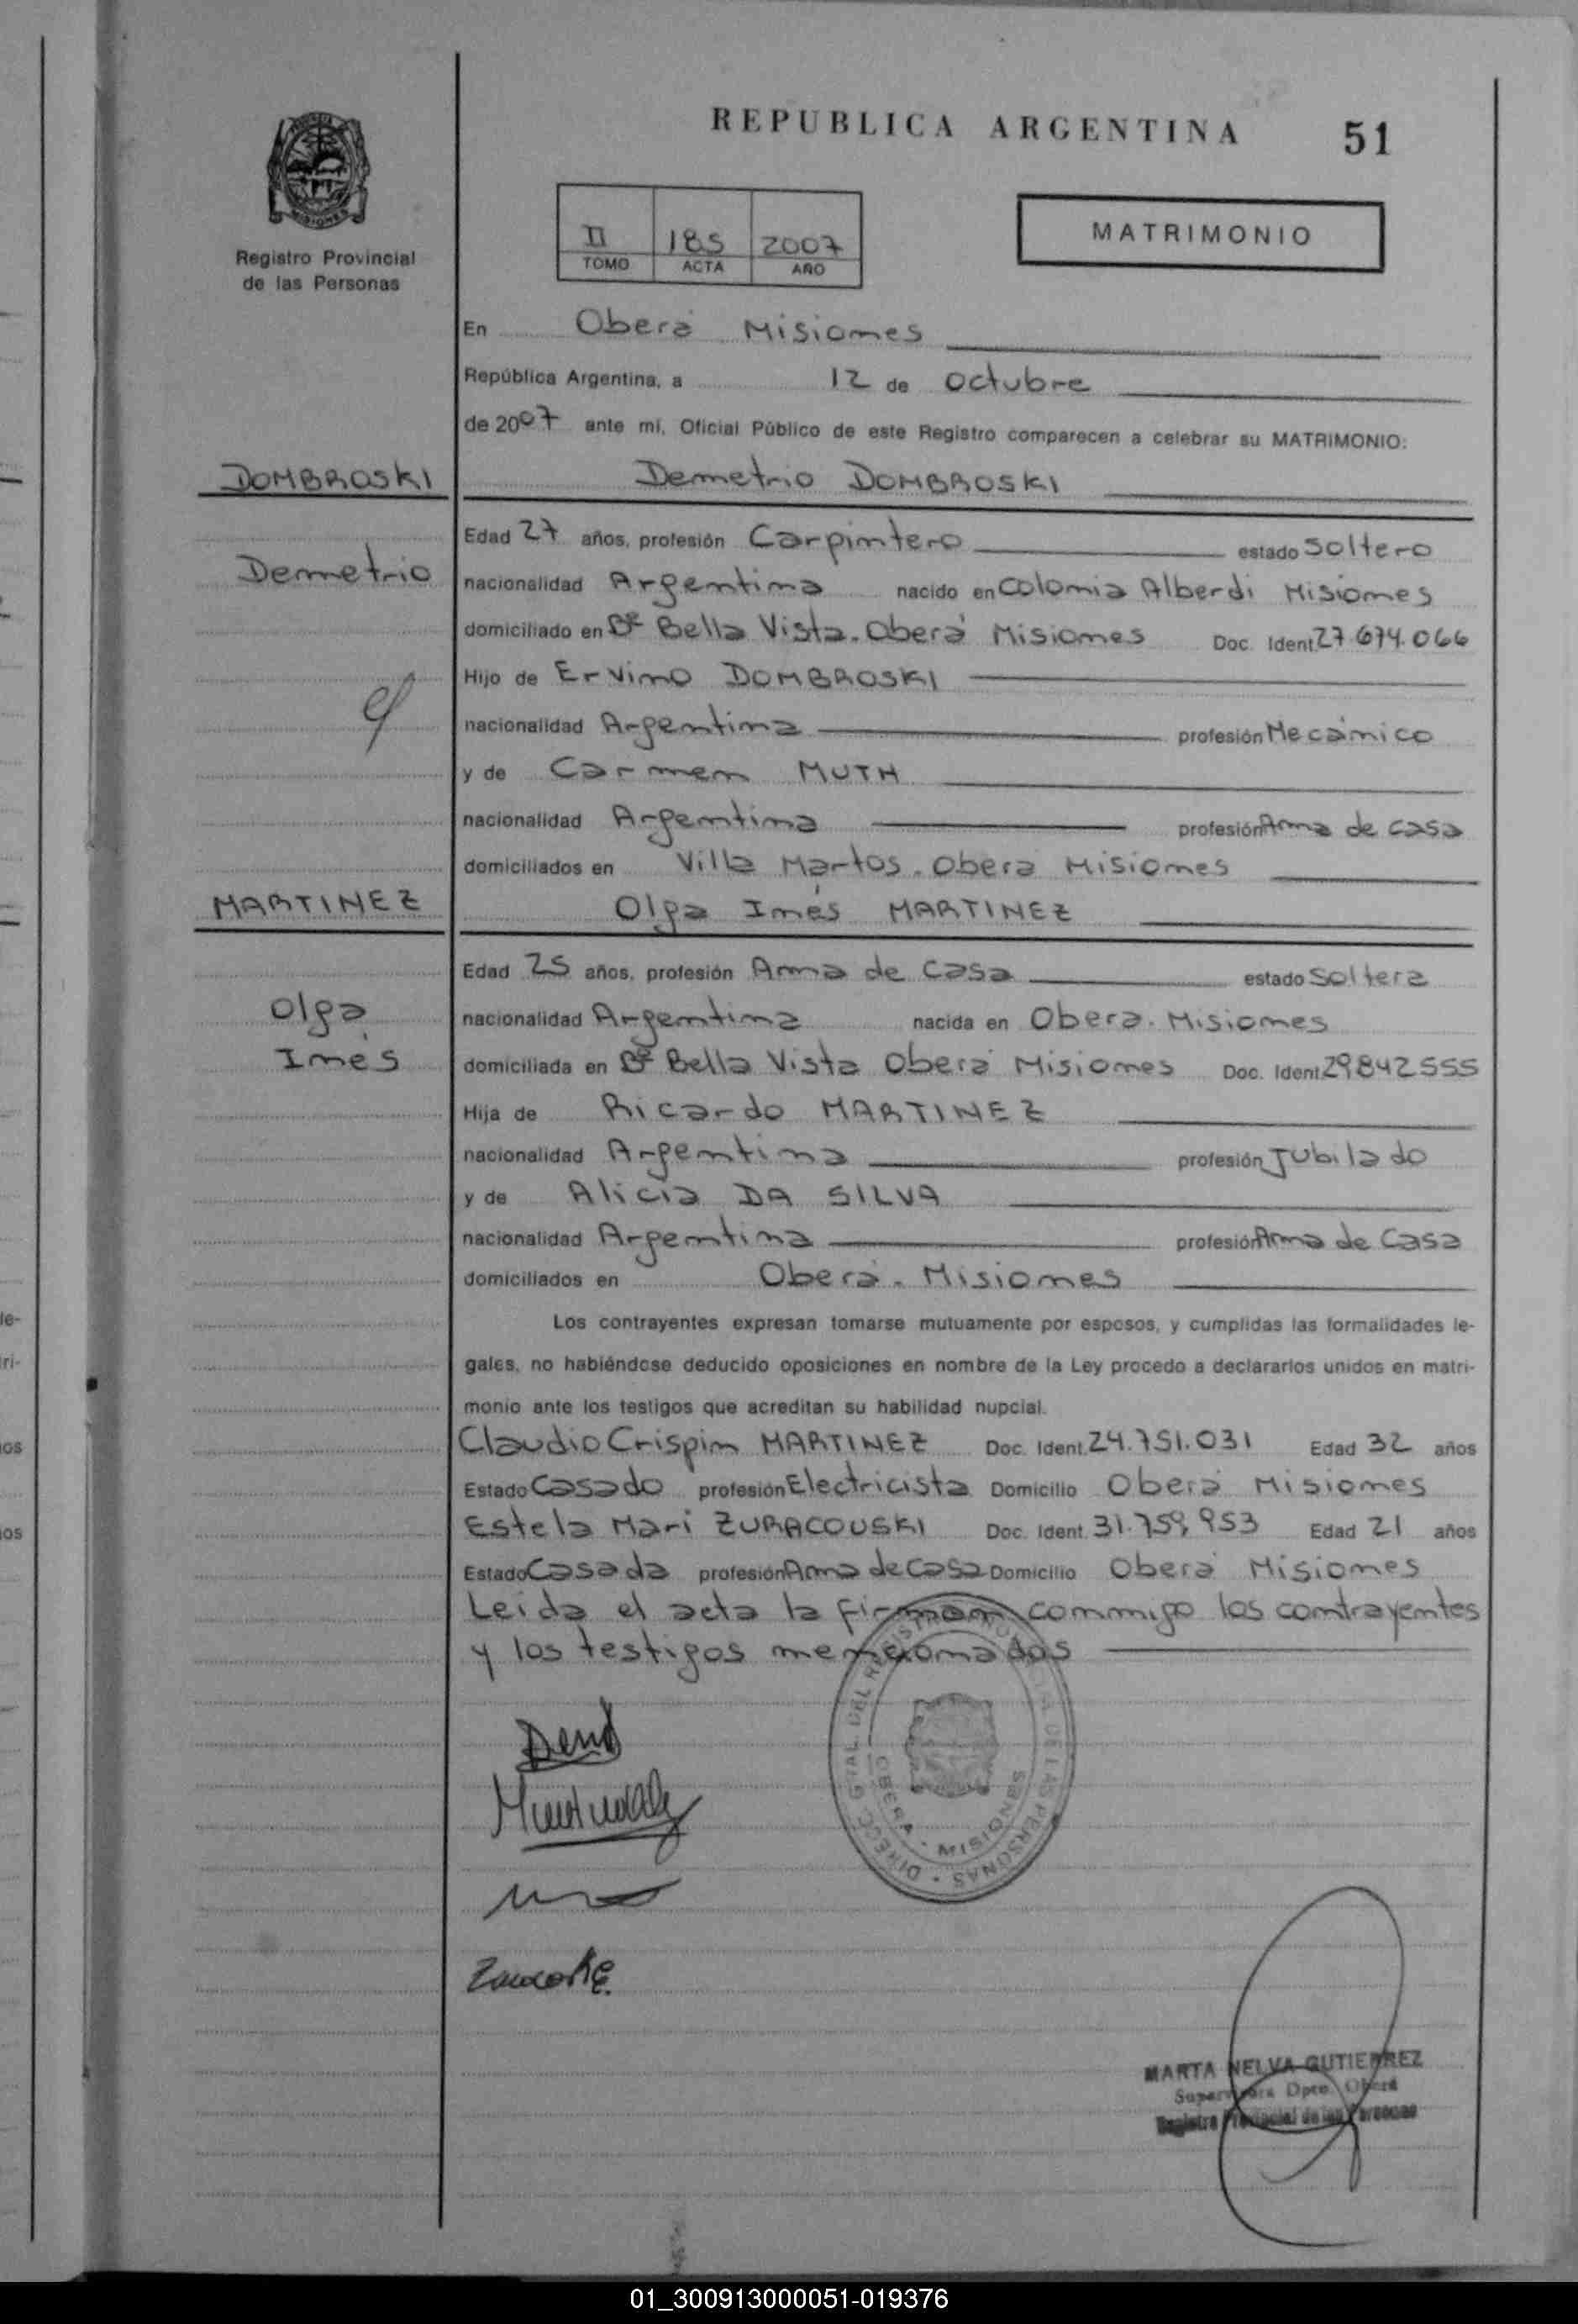 REPUBLICA ARGENTINA 51
Registro Provincial
de las Personas
II 185 2007
TOMO ACTA AÑO
MATRIMONIO
En Oberá Misiones
República Argentina, a 12 de Octubre
de 2007 ante mí, Oficial Público de este Registro comparecen a celebrar su MATRIMONIO:
DOMBROSKI
Demetrio DOMBROSKI
Edad 27 años, profesión Carpintero estado Soltero
Demetrio
nacionalidad Argentina nacido en Colonia Alberdi Misiones
domiciliado en Bº Bella Vista. Oberá Misiones Doc. Ident. 27.674.066
Hijo de Ervino DOMBROSKI
nacionalidad Argentina profesión Mecánico
y de Carmen MUTH
nacionalidad Argentina profesión Ama de casa
domiciliados en Villa Martos. Oberá Misiones
MARTINEZ
Olga Inés MARTINEZ
Edad 25 años, profesión Ama de Casa estado Soltera
Olga
Inés
nacionalidad Argentina nacida en Oberá. Misiones
domiciliada en Bº Bella Vista Oberá Misiones Doc. Ident. 29.842.555
Hija de Ricardo MARTINEZ
nacionalidad Argentina profesión Jubilado
y de Alicia DA SILVA
nacionalidad Argentina profesión Ama de Casa
domiciliados en Oberá. Misiones
Los contrayentes expresan tomarse mutuamente por esposos, y cumplidas las formalidades le-
gales, no habiéndose deducido oposiciones en nombre de la Ley procedo a declararlos unidos en matri-
monio ante los testigos que acreditan su habilidad nupcial.
Claudio Crispin MARTINEZ Doc. Ident. 24.751.031 Edad 32 años
Estado Casado profesión Electricista Domicilio Oberá Misiones
Estela Mari ZURACOUSKI Doc. Ident. 31.759.953 Edad 21 años
Estado Casada profesión Ama de Casa Domicilio Oberá Misiones
Leida el acta la firman conmigo los contrayentes
y los testigos mencionados
DIRECC. GRAL. DEL REGISTRO PROVINCIAL DE LAS PERSONAS
OBERA - MISIONES
MARTA NELVA GUTIERREZ
Supervisora Dpto. Oberá
Registro Provincial de las Personas
01_300913000051-019376